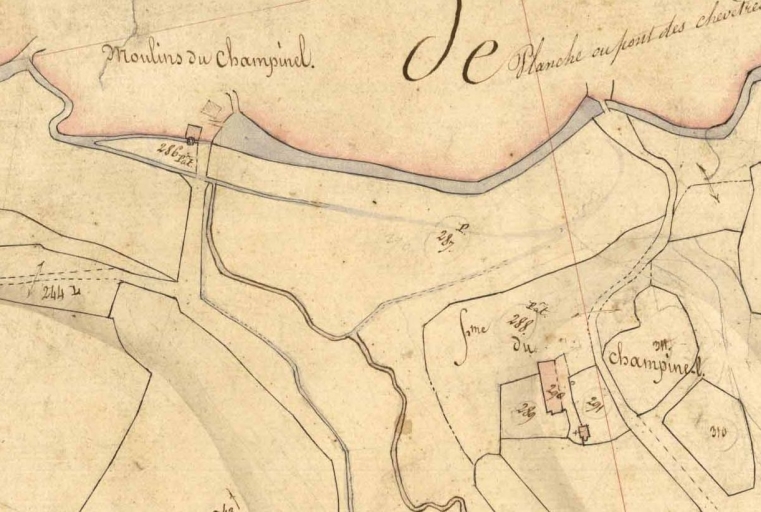 Moulins du Champinel.
De
Planche ou pont des chevêtres
286 Pât.
P.
287.
244 P.
Pât.
288.
fme
du
311
Champinel.
290
289
291
310